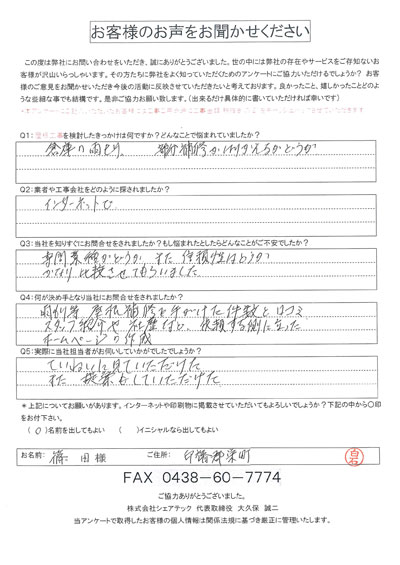 お客様のお声をお聞かせください
この度は弊社にお問い合わせをいただき、誠にありがとうございます。世の中には弊社の存在やサービスをご存知ないお
客様が沢山いらっしゃいます。その方たちに弊社をよく知っていただくためのアンケートにご協力いただけるでしょうか? お客
様のご意見をお聞かせいただき今後の活動に反映させていただきたいと考えております。良かったこと、嬉しかったことどのよ
うな些細な事でも結構です。是非ご協力お願い致します。(出来るだけ具体的に書いていただければ幸いです)
Q1:屋根工事を検討したきっかけは何ですか?どんなことで悩まれていましたか?
倉庫の雨もり。 部分補修が行なえるかどうか
Q2:業者や工事会社をどのように探されましたか?
インターネットで
Q3:当社を知りすぐにお問合せをされましたか?もし悩まれたとしたらどんなことがご不安でしたか?
専門業種かどうか、また 信頼性はどうか
かなり比較させてもらいました
Q4:何が決め手となり当社にお問合せをしましたか?
屋根補修を手がけた件数と口コミ
スタッフ紹介や社歴など、依頼する側に立った
ホームページの作成
Q5:実際に当社担当者がお伺いしていかがでしたでしょうか?
ていねいに見ていただけた
また 提案もしていただけた
*上記についてお願いがあります。インターネットや印刷物に掲載させていただいてもよろしいでしょうか?下記の中から〇印
をお付下さい。
(○)名前を出してもよい ( )イニシャルなら出してもよい
お名前: 田 様 ご住所: 印旛郡栄町 白石
FAX 0438-60-7774
ご協力ありがとうございました。
株式会社シェアテック 代表取締役 大久保 誠二
当アンケートで取得したお客様の個人情報は関係法規に基づき厳正に管理いたします。